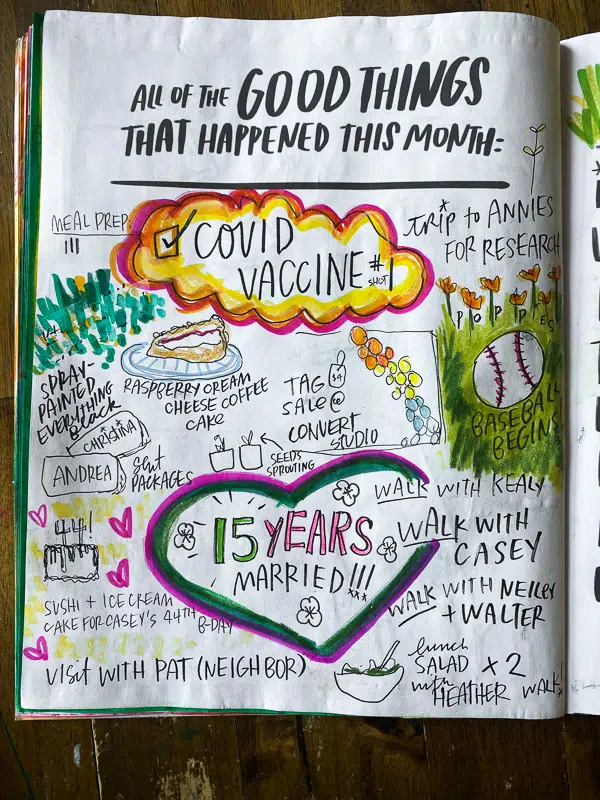 ALL OF THE GOOD THINGS
THAT HAPPENED THIS MONTH:
MEAL PREP
COVID
VACCINE #1
SHOT
TRIP to ANNIES
FOR RESEARCH
POPPIES
SPRAY-
PAINTED
EVERYTHING
Black
RASPBERRY CREAM
CHEESE COFFEE
CAKE
TAG
SALE @
CONVERT
STUDIO
BASEBALL
BEGINS
CHRISTINA
ANDREA
Sent
PACKAGES
SEEDS
SPROUTING
15 YEARS
MARRIED!!!
WALK WITH KEALY
WALK WITH
CASEY
WALK WITH NEILEY
+ WALTER
44!
SUSHI + ICE CREAM
CAKE FOR CASEY'S 44TH
B-DAY
VISIT WITH PAT (NEIGHBOR)
lunch
SALAD x 2
with
HEATHER WALK!